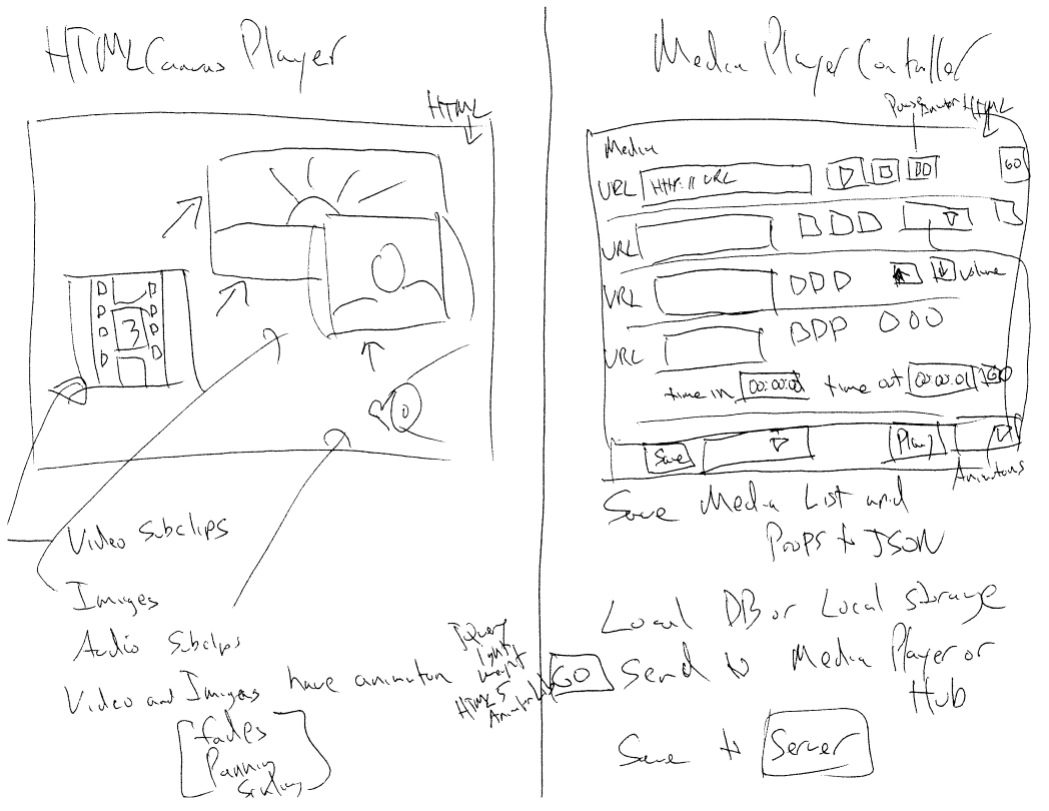 HTML Canvas Player
HTML
3
Video Subclips
Images
Audio Subclips
Video and Images have animation
JQuery
light
weight
HTML5
Fades
Panning
Scaling
Media Player Controller
Pause Button HTML
Media
URL HTTP:// URL
GO
URL
URL Volume
URL
time in 00:00:01 time out 00:00:01 GO
Save Play
Animations
Save Media List and
Props to JSON
Local DB or Local storage
GO Send to Media Player or
Hub
Save to Server